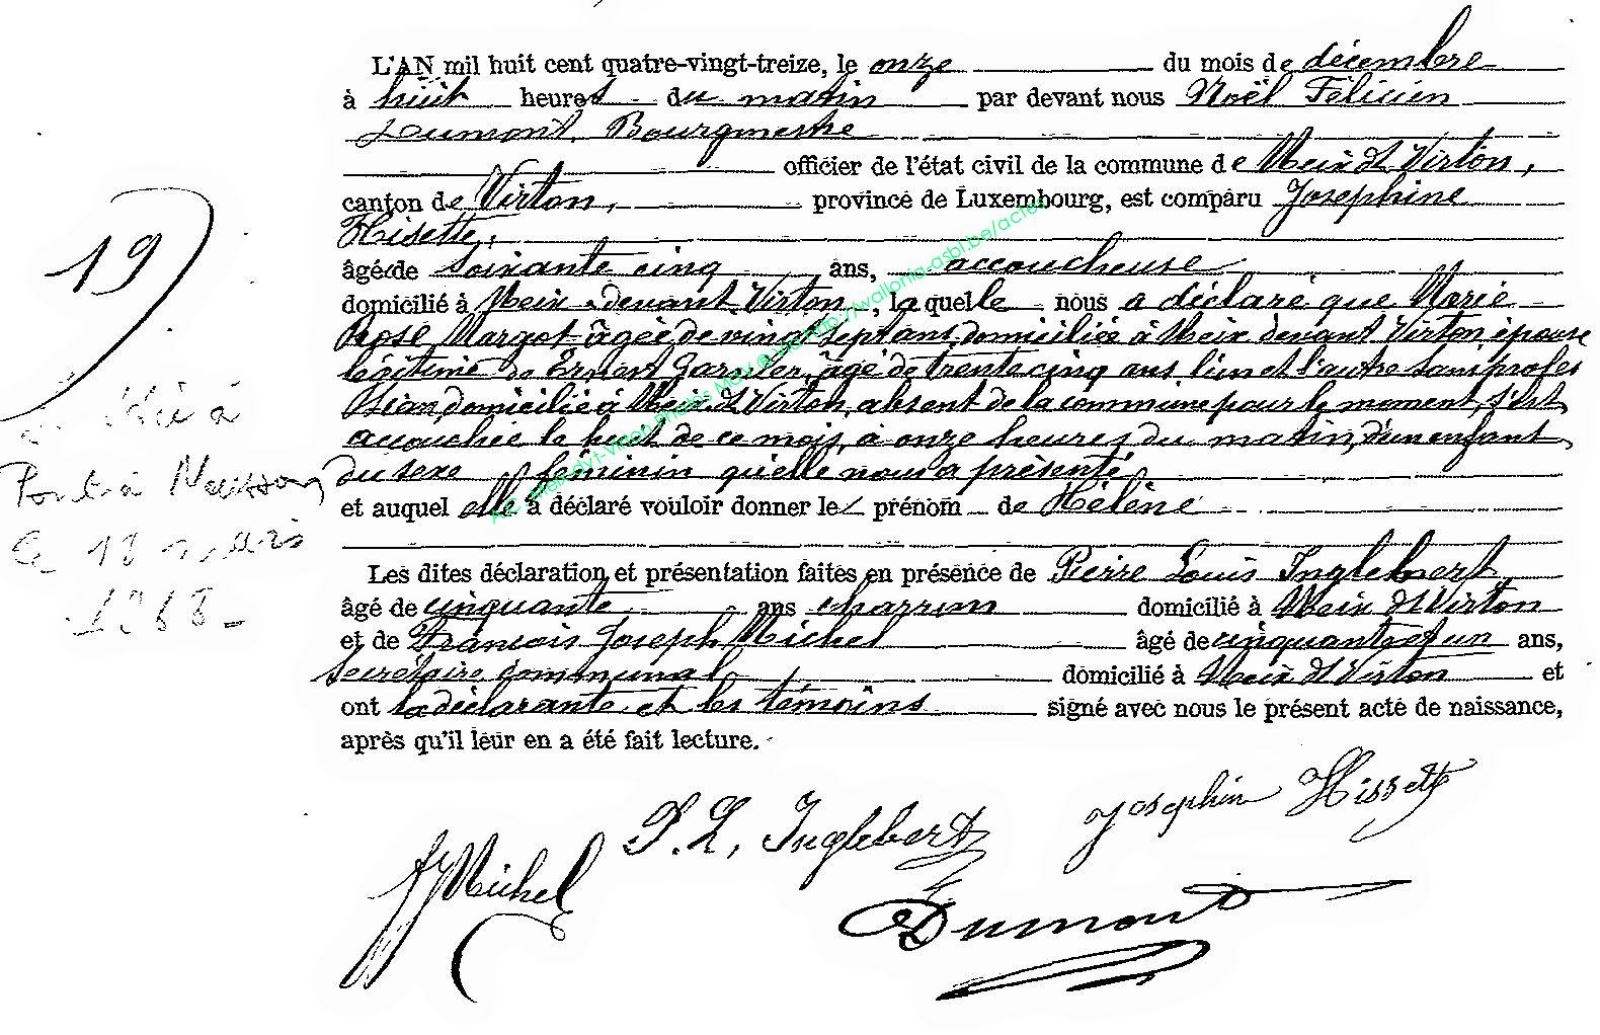 L'AN mil huit cent quatre-vingt-treize, le onze du mois de décembre
à huit heures du matin par devant nous Noël Félicien
Dumont, Bourgmestre
officier de l'état civil de la commune de Meix dt Virton,
canton de Virton, province de Luxembourg, est comparu Josephine
Hisette,
âgé de soixante cinq ans, accoucheuse
domicilié à Meix-devant-Virton, laquelle nous a déclaré que Marie
Rose Margot âgée de vingt sept ans, domiciliée à Meix devant Virton épouse
légitime de Ernest Garnier, âgé de trente cinq ans l'un et l'autre sans profes
sion domicilié à Meix dt Virton, absent de la commune pour le moment, s'est
accouchée le huit de ce mois, à onze heures du matin, d'un enfant
du sexe féminin qu'elle nous a présenté
et auquel elle a déclaré vouloir donner le prénom de Hélène
Les dites déclaration et présentation faites en présence de Pierre Louis Inglebert
âgé de cinquante ans charron domicilié à Meix dt Virton
et de François Joseph Michel âgé de cinquante et un ans,
secrétaire communal domicilié à Meix dt Virton et
ont la déclarante et les témoins signé avec nous le présent acte de naissance,
après qu'il leur en a été fait lecture.
19
à
Pont à Mousson
le 18 mars
Josephin Hissette
P. L. Inglebert
FJ Michel
Dumont